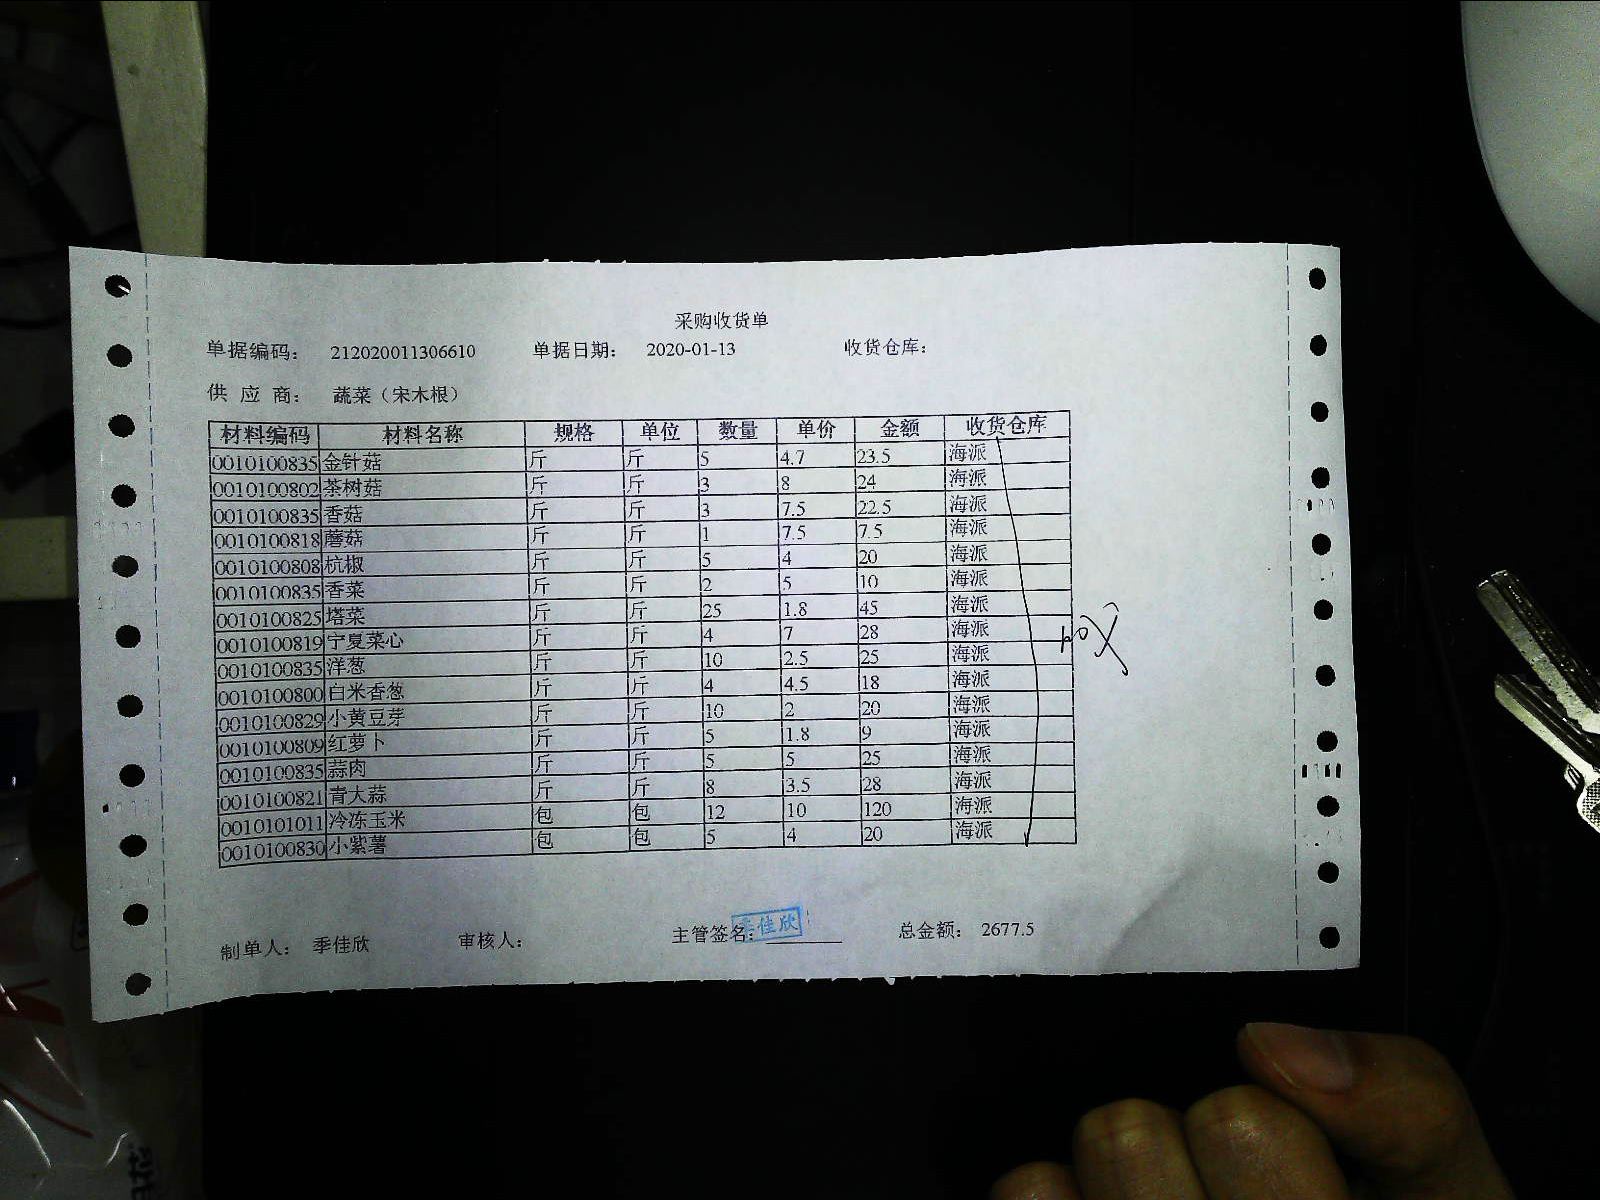 采购收货单
单据编码： 212020011306610 单据日期： 2020-01-13 收货仓库：
供 应 商： 蔬菜（宋木根）
材料编码 材料名称 规格 单位 数量 单价 金额 收货仓库
0010100835 金针菇 斤 斤 5 4.7 23.5 海派
0010100802 茶树菇 斤 斤 3 8 24 海派
0010100835 香菇 斤 斤 3 7.5 22.5 海派
0010100818 蘑菇 斤 斤 1 7.5 7.5 海派
0010100808 杭椒 斤 斤 5 4 20 海派
0010100835 香菜 斤 斤 2 5 10 海派
0010100825 塔菜 斤 斤 25 1.8 45 海派
0010100819 宁夏菜心 斤 斤 4 7 28 海派
0010100835 洋葱 斤 斤 10 2.5 25 海派
0010100800 白米香葱 斤 斤 4 4.5 18 海派
0010100829 小黄豆芽 斤 斤 10 2 20 海派
0010100809 红萝卜 斤 斤 5 1.8 9 海派
0010100835 蒜肉 斤 斤 5 5 25 海派
0010100821 青大蒜 斤 斤 8 3.5 28 海派
0010101011 冷冻玉米 包 包 12 10 120 海派
0010100830 小紫薯 包 包 5 4 20 海派
制单人： 季佳欣 审核人： 主管签名: 季佳欣 总金额： 2677.5